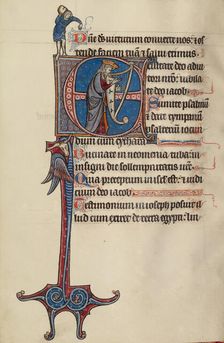 Dñe ds uirtutum conuerte nos: ⁊ os
tende faciem tuam ⁊ salui erimus
ultate deo adiu
tori nr̄o: iubilate
deo iacob.
Sumite psalmū
⁊ date tympanū:
psalterium iocun
dum cum cythara.
Bucinate in neomenia tuba: in
insigni die sollempnitatis
Quia preceptum in isrl̄ est: ⁊ iudi
cium deo iacob.
Testimonium in ioseph posuit il
lud cum exiret de terra egypti: